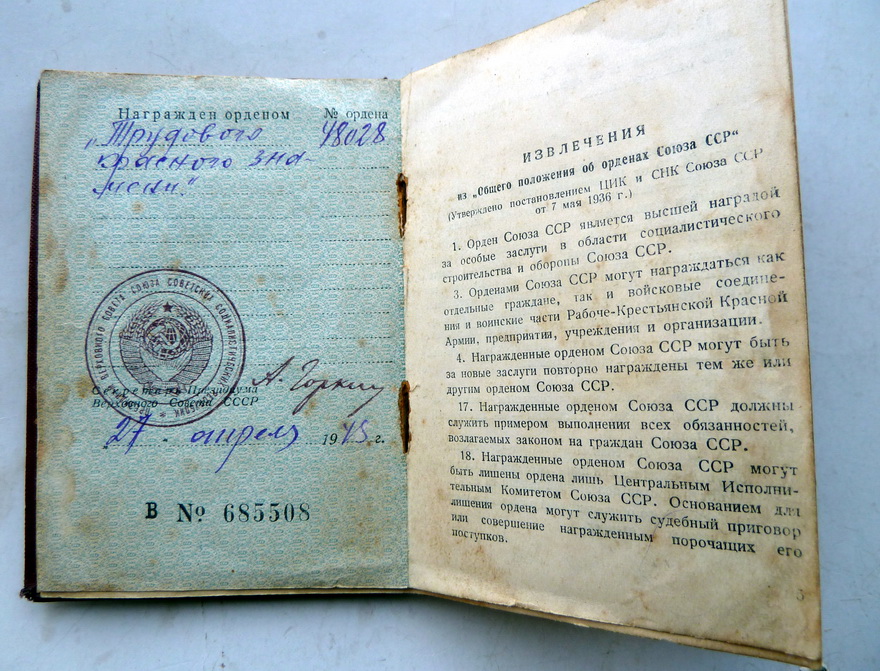 Награжден орденом № ордена
„Трудового 48028
красного зна-
мени“
Секретарь Президиума А. Горкин
Верховного Совета СССР
„27“ апреля 1945 г.
В № 685508
ИЗВЛЕЧЕНИЯ
из „Общего положения об орденах Союза ССР“
(Утверждено постановлением ЦИК и СНК Союза ССР
от 7 мая 1936 г.)
1. Орден Союза ССР является высшей наградой
за особые заслуги в области социалистического
строительства и обороны Союза ССР.
3. Орденами Союза ССР могут награждаться как
отдельные граждане, так и войсковые соедине-
ния и воинские части Рабоче-Крестьянской Красной
Армии, предприятия, учреждения и организации.
4. Награжденные орденом Союза ССР могут быть
за новые заслуги повторно награждены тем же или
другим орденом Союза ССР.
17. Награжденные орденом Союза ССР должны
служить примером выполнения всех обязанностей,
возлагаемых законом на граждан Союза ССР.
18. Награжденные орденом Союза ССР могут
быть лишены ордена лишь Центральным Исполни-
тельным Комитетом Союза ССР. Основанием для
лишения ордена могут служить судебный приговор
или совершение награжденным порочащих его
поступков.